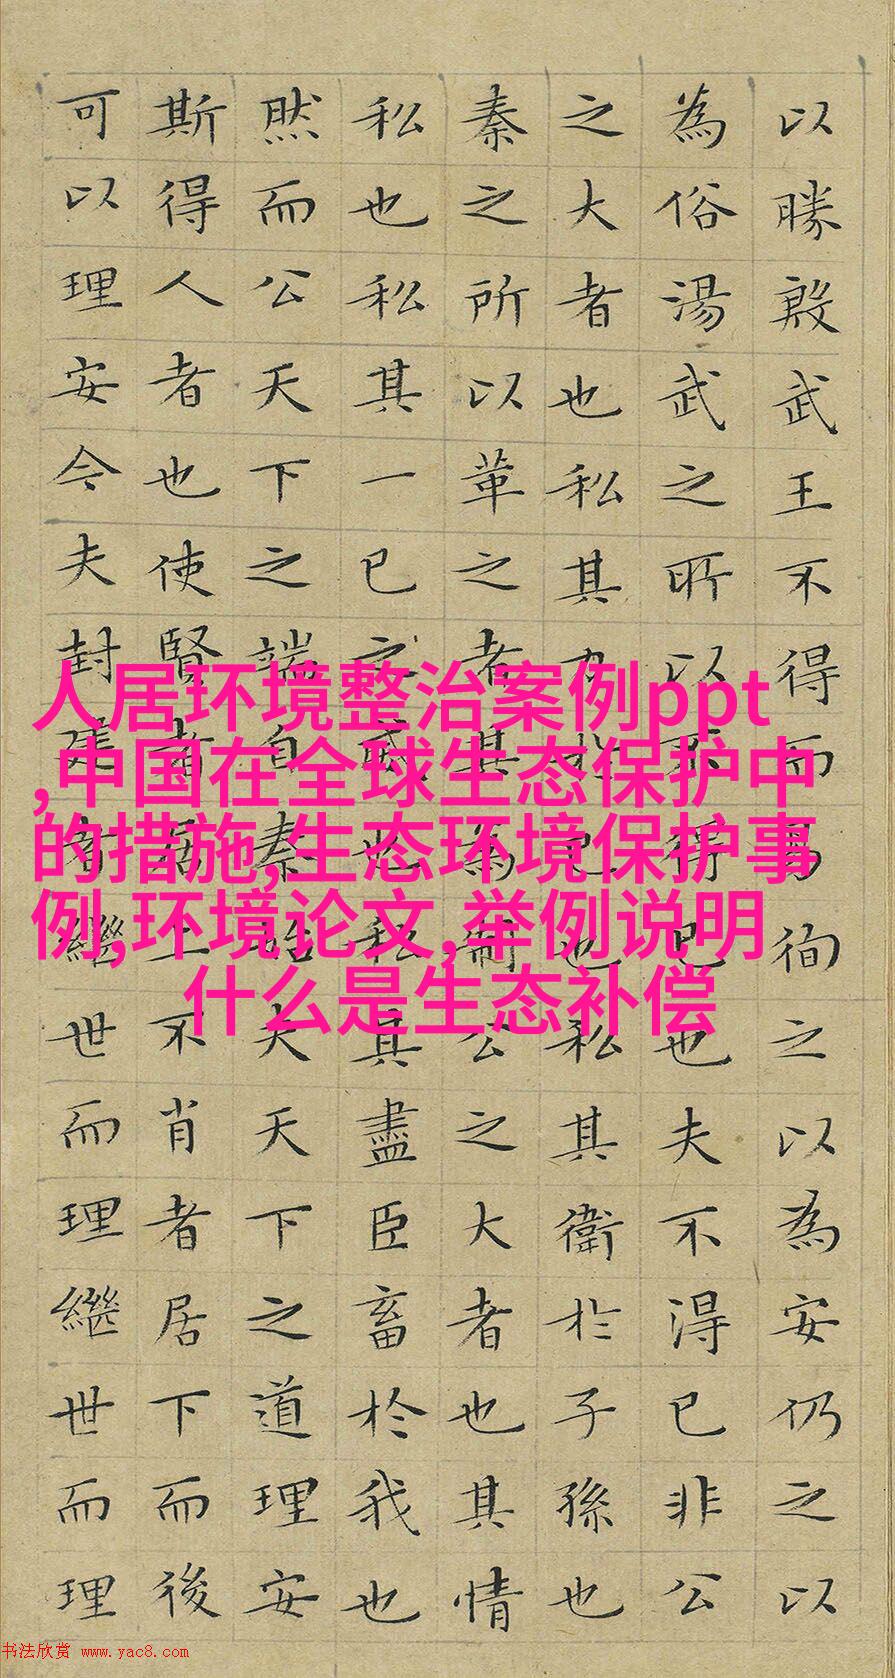 以勝殷武王不得而易徇之以為安仍之以
為俗湯武之所以不得已也夫不得已非公
之大者也私其力於己也私其衛於子孫也
秦之所以革之者其為制公之大者也其情
私也私其一己之威也私其盡臣畜於我也
然而公天下之端自秦始夫天下之道理安
斯得人者也使賢者居上不肖者居下而後
可以理安今夫封建者繼世而理繼世而理
人居环境整治案例ppt
,中国在全球生态保护中
的措施,生态环境保护事
例,环境论文,举例说明
什么是生态补偿
书法欣赏 www.yac8.com